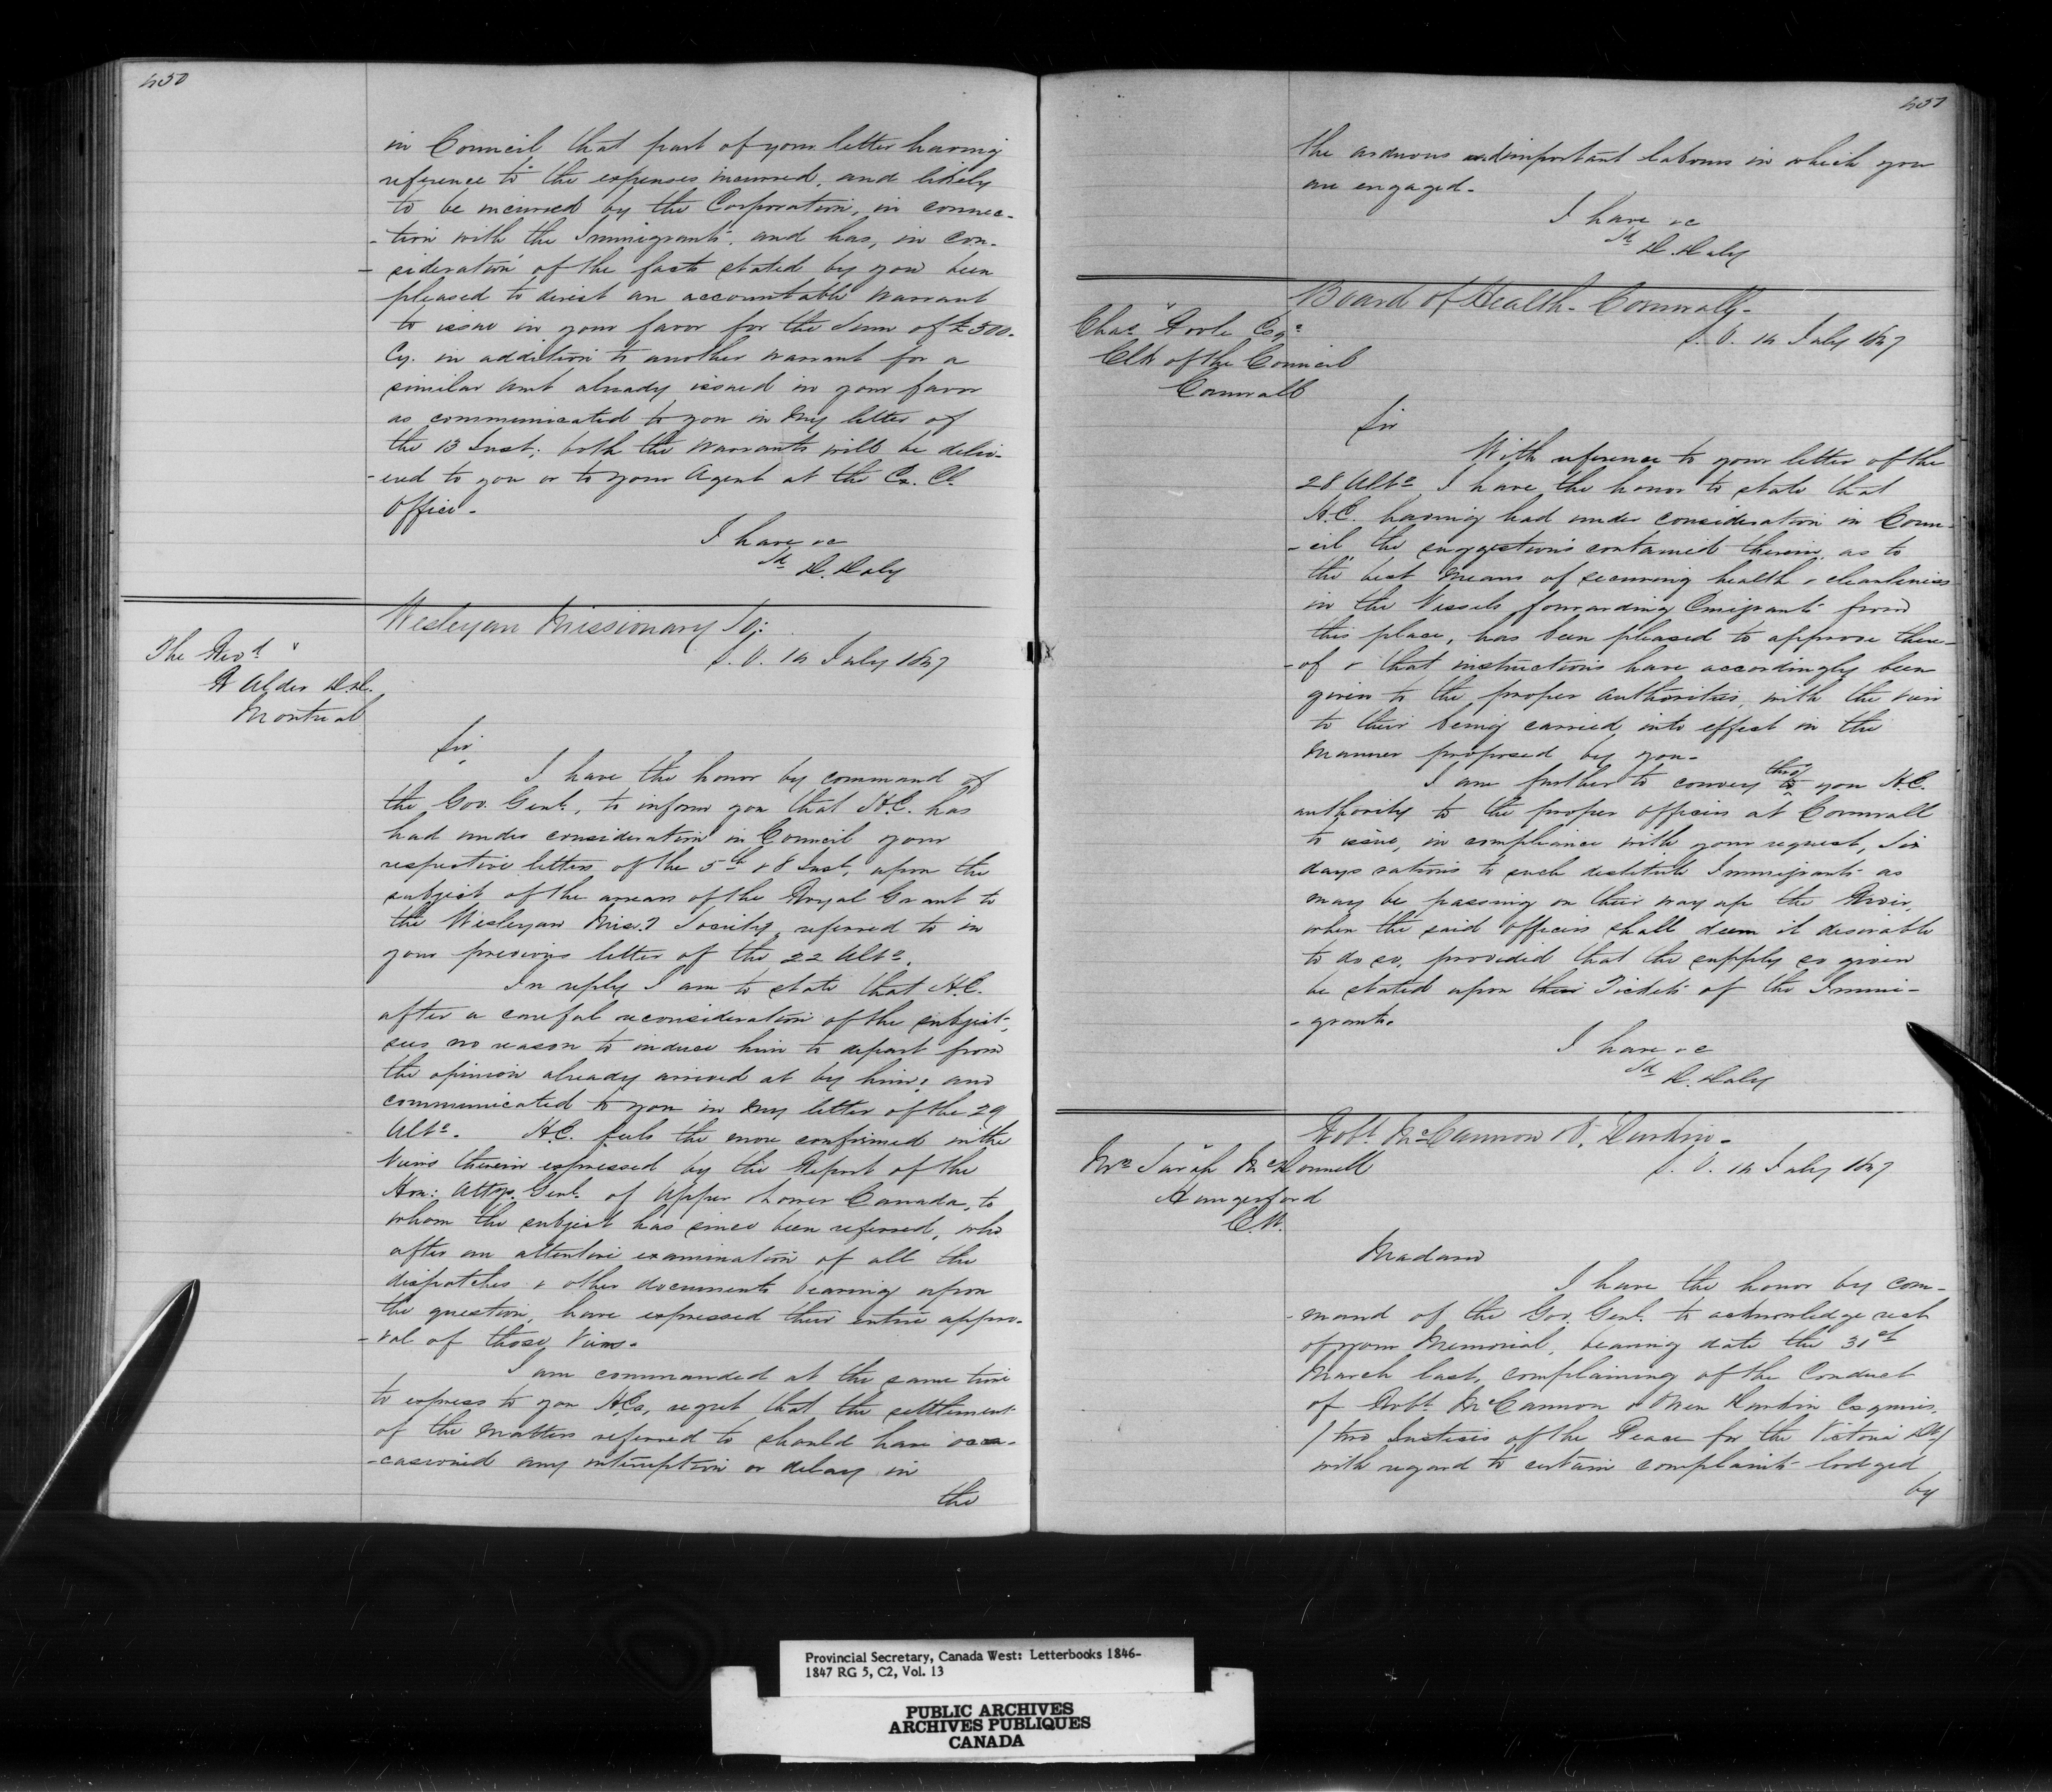 450
in Council that part of your letter having
reference to the expenses incurred, and likely
to be incurred by the Corporation, in connec-
-tion with the Immigrants, and has, in con-
-sideration of the facts stated by you been
pleased to direct an accountable Warrant
to issue in your favor for the Sum of £500.
Cy. in addition to another Warrant for a
similar amt already issued in your favor
as communicated to you in my letter of
the 13 Inst; both the Warrants will be deliv-
-ered to you or to your Agent at the Ex. Cl.
Office.
I have &c
Sd D. Daly
Wesleyan Missionary Sy:
S. O. 14 July 1847
The Revd
R Alder D.D.
Montreal
Sir,
I have the honor by command of
the Gov. Genl., to inform you that H.E. has
had under consideration in Council your
respective letters of the 5th & 8 Inst. upon the
subject of the arrears of the Royal Grant to
the Wesleyan Missy Society, referred to in
your previous letter of the 22 Ulto.
In reply I am to state that H.E.
after a careful reconsideration of the subject,
sees no reason to induce him to depart from
the opinion already arrived at by him; and
communicated to you in my letter of the 29
Ulto. H.E. feels the more confirmed in the
views therein expressed by the Report of the
Hon: Attys. Genl. of Upper & Lower Canada, to
whom the subject has since been referred, who
after an attentive examination of all the
dispatches & other documents bearing upon
the question, have expressed their entire appro-
-val of those Views.
I am commanded at the same time
to express to you H.Es. regret that the settlement
of the matters referred to should have occa-
-casioned any interruption or delay in
the
451
the arduous and important labours in which you
are engaged.
I have &c
Sd D. Daly
Board of Health - Cornwall -
S. O. 14 July 1847
Chas Poole Esqe
Clk of the Council
Cornwall
Sir
With reference to your letter of the
28 Ulto I have the honor to state that
H.E. having had under consideration in Coun-
-cil the suggestions contained therein, as to
the best means of securing health & cleanliness
in the Vessels forwarding Emigrants from
this place, has been pleased to approve there-
-of & that instructions have accordingly been
given to the proper authorities, with the view
to their being carried into effect in the
manner proposed by you.
I am further to convey thro' to you H.E.
authority to the proper officers at Cornwall
to issue, in compliance with your request, Six
days rations to such destitute Immigrants as
may be passing on their way up the River,
when the said Officers shall deem it desirable
to do so, provided that the supply so given
be stated upon the Tickets of the Immi-
-grants.
I have &c
Sd D. Daly
Robt McCammon & Durkin -
S. O. 14 July 1847
Mrs Sarah McDonnell
Hungerford
C.W.
Madam
I have the honor by com-
-mand of the Gov. Genl. to acknowledge rect
of your Memorial, bearing date the 31st
March last, complaining of the Conduct
of Robt McCammon & Durkin Esquires,
/two Justices of the Peace for the Victoria Dt/
with regard to certain complaints lodged
by
Provincial Secretary, Canada West: Letterbooks 1846-
1847 RG 5, C2, Vol. 13
PUBLIC ARCHIVES
ARCHIVES PUBLIQUES
CANADA